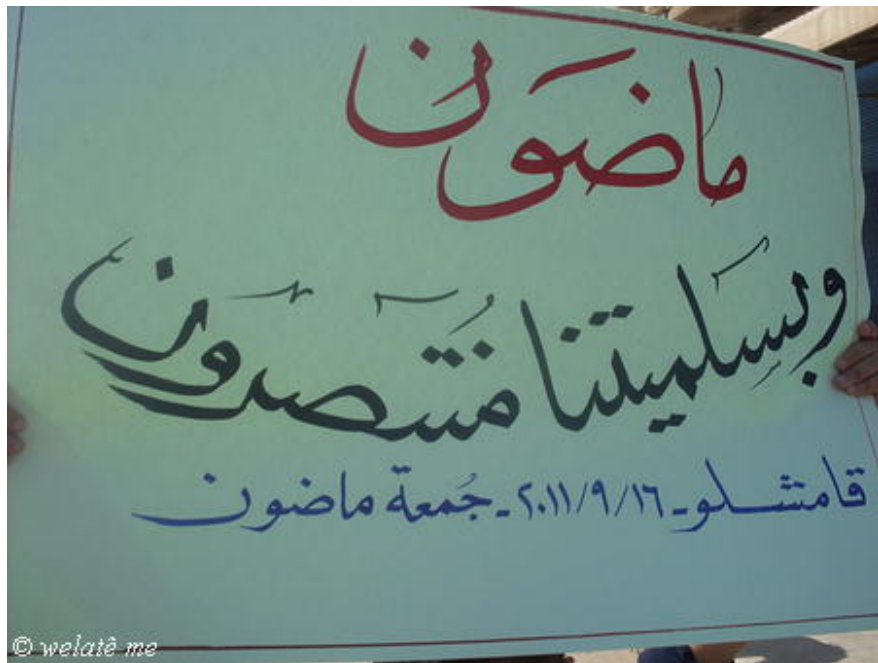 ماضون
وبسلميتنا منتصرون
قامشلو - ٢٠١١/٩/١٦ - جُمعة ماضون
© welatê me